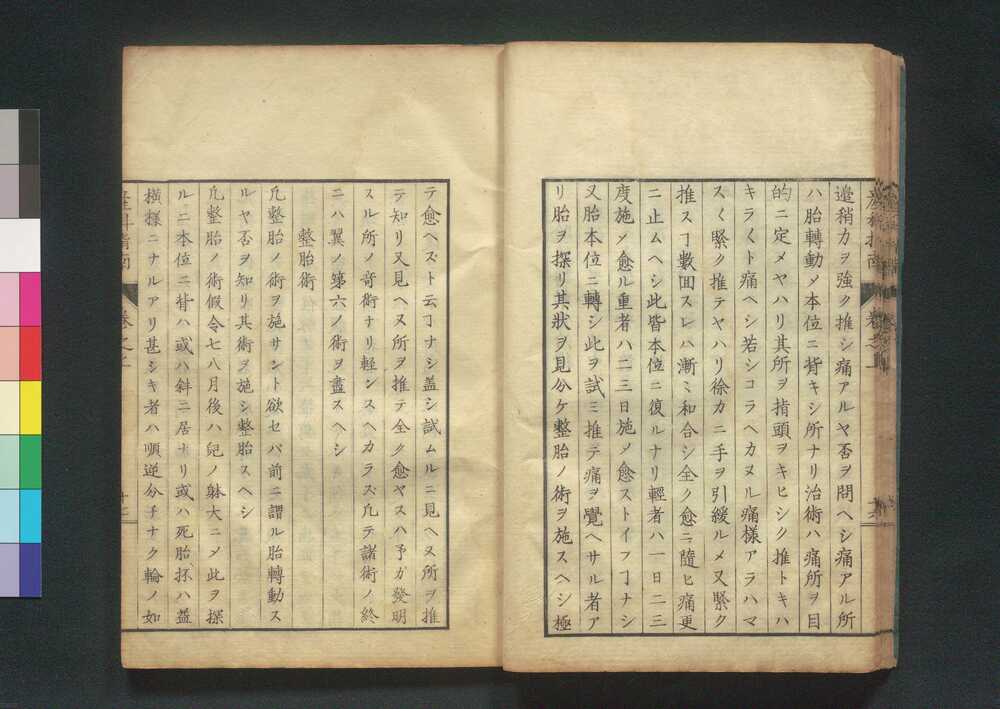 産科指南 巻之一
邉稍力ヲ強ク推シ痛アルヤ否ヲ問ヘシ痛アル所
ハ胎轉動メ本位ニ背キシ所ナリ治術ハ痛所ヲ目
的ニ定メヤハリ其所ヲ指頭ヲキヒシク推トキハ
キラ〱ト痛ヘシ若シコラヘカヌル痛様アラハマ
スく緊ク推テヤハリ徐カニ手ヲ引緩ルメ又緊ク
推スヿ數囬スレハ漸〻和合シ全ク愈ニ隨ヒ痛更
ニ止ムヘシ此皆本位ニ復ルナリ輕者ハ一日二三
度施メ愈ル重者ハ二三日施メ愈ストイフヿナシ
又胎本位ニ轉シ此ヲ試ミ推テ痛ヲ覺ヘサル者ア
リ胎ヲ探リ其狀ヲ見分ケ整胎ノ術ヲ施スヘシ極
テ愈ヘズト云ヿナシ盖シ試ムルニ見ヘヌ所ヲ推
テ知リ又見ヘヌ所ヲ推テ全ク愈ヤスハ予ガ發明
スル所ノ奇術ナリ軽ンスヘカラズ凢テ諸術ノ終
ニハ翼ノ第六ノ術ヲ盡スヘシ
整胎術
凢整胎ノ術ヲ施サント欲セバ前ニ謂ル胎轉動ス
ルヤ否ヲ知リ其術ヲ施シ整胎スヘシ
凢整胎ノ術假令七八月後ハ皃ノ躰大ニメ此ヲ探
ルニ本位ニ背ハ或ハ斜ニ居ナリ或ハ死胎抔ハ益
横様ニナルアリ甚シキ者ハ順逆分チナク輪ノ如
産科指南 巻之一